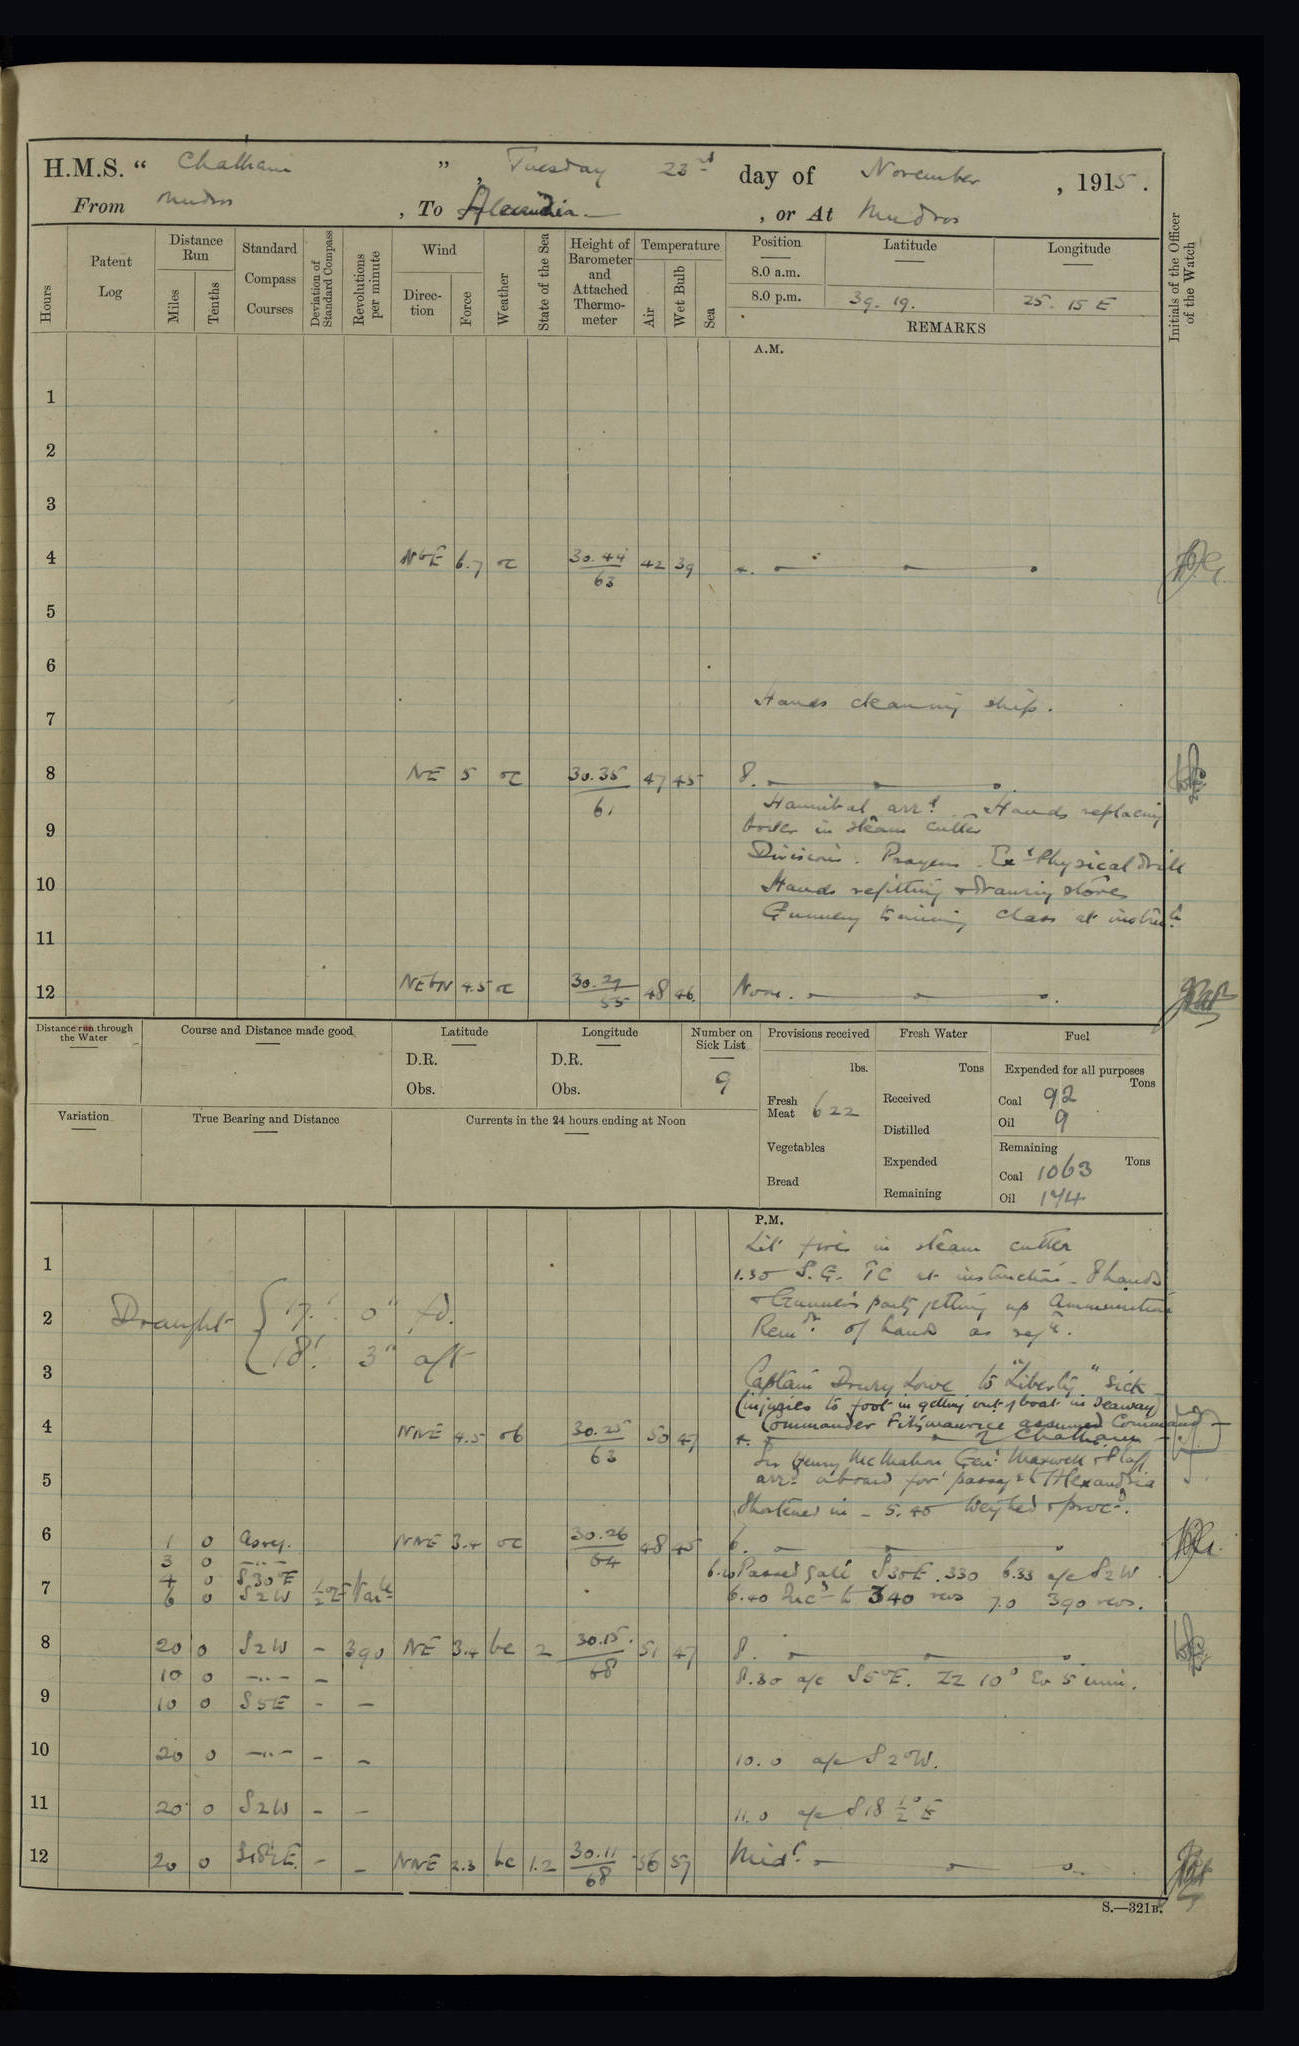 H.M.S. “ Chatham ” , Tuesday 23rd day of November , 1915 .
From Mudros , To Alexandria , or At Mudros
Hours
Patent Log
Distance Run
Miles
Tenths
Standard Compass Courses
Deviation of Standard Compass
Revolutions per minute
Wind
Direc-tion
Force
Weather
State of the Sea
Height of Barometer and Attached Thermo-meter
Temperature
Air
Wet Bulb
Sea
Position
Latitude
Longitude
8.0 a.m.
8.0 p.m. 39. 19. 25. 15 E
REMARKS
Initials of the Officer of the Watch
A.M.
1
2
3
4 NbE 6.7 oc 30.44 42 39 4.
63
5
6
Hands cleaning ship.
7
8 NE 5 oc 30.35 47 45 8.
61
Hannibal arrd. Hands replacing
boiler in steam cutter
9
Divisions. Prayers. Exd Physical drill
10 Hands refitting & drawing stores
Gunnery training class at instrn.
11
12 NEbN 4.5 oc 30.29 48 46 Noon.
55
Distance run through the Water
Course and Distance made good
Latitude
D.R.
Obs.
Longitude
D.R.
Obs.
Number on Sick List
9
Provisions received
lbs.
Fresh Meat 622
Vegetables
Bread
Fresh Water
Tons
Received
Distilled
Expended
Remaining
Fuel
Expended for all purposes
Tons
Coal 92
Oil 9
Remaining
Tons
Coal 1063
Oil 174
Variation
True Bearing and Distance
Currents in the 24 hours ending at Noon
P.M.
Lit fires in steam cutter
1
1.30 S.G. TC at instruction. 8 hands
& Gunner's party getting up Ammunition
2 Draught { 17.' 0" fd.
Remdr. of hands as reqte.
18.' 3" aft
3
Captain Drury Lowe to "Liberty" sick
(injuries to foot in getting out of boat in seaway)
Commander Fitzmaurice assumed Command
4 NNE 4.5 ob 30.25 50 47 4. of Chatham
63
Sir Henry McMahon Genl Maxwell & Staff
5 arrd. aboard for passage to Alexandria
Shortened in - 5.40 Weighed & procd.
6 1 0 As req. NNE 3.4 oc 30.26 48 45 6.
64
3 0 -..-
4 0 S30°E 6.10 Passed gate S30E. 330 6.33 a/c S2W
7
6 0 S2W ½°E Varle 6.40 Incd to 340 revs 7.0 390 revs.
8 20 0 S2W - 390 NE 3.4 bc 2 30.15 51 47 8.
68
10 0 -..- - 8.30 a/c S5°E. ZZ 10° Ev 5 min.
9 10 0 S5E - -
10 20 0 -..- - - 10.0 a/c S2°W.
11 20 0 S2W - - 11.0 a/c S18½°E
12 20 0 S18½E - - NNE 2.3 bc 1.2 30.11 56 57 Midt.
68
S.—321B.